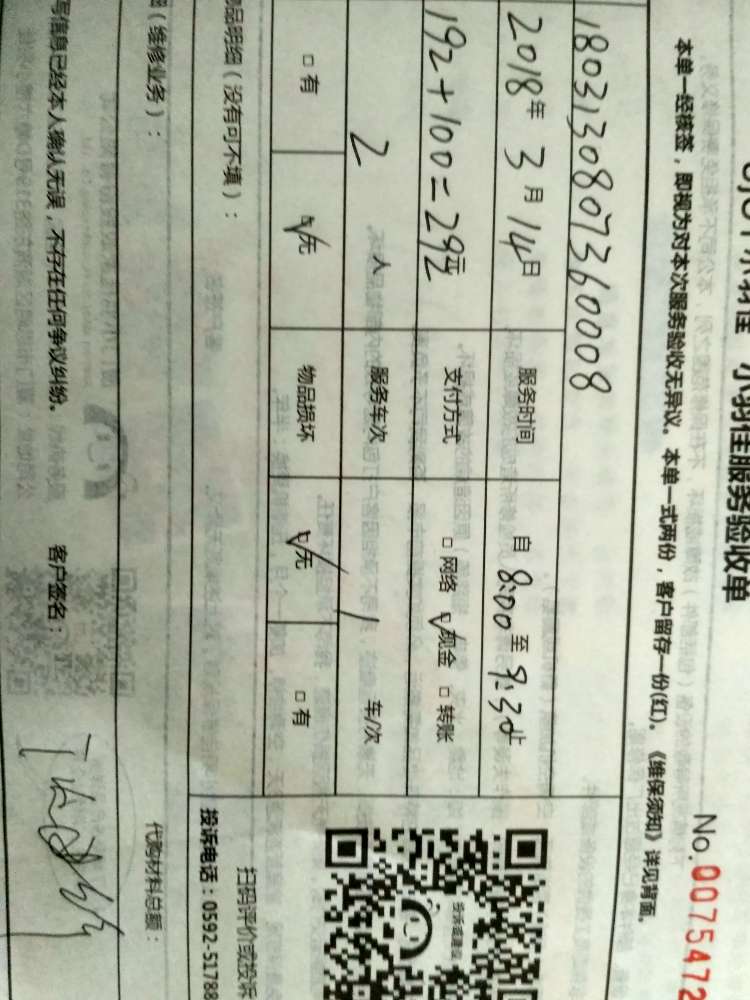 小羽佳服务验收单
No.0075472
本单一经核签，即视为对本次服务验收无异议。本单一式两份，客户留存一份(红)。《维保须知》详见背面。
1803130807360008
2018年 3月 14日 服务时间 自 8:00 至 9:30止
192+100=292元 支付方式 □ 网络 ☑ 现金 □ 转账
2 人 服务车次 1 车/次
□ 有 ☑ 无 物品损坏 ☑ 无 □ 有
品明细（没有可不填）：
扫码评价或投诉
投诉电话：0592-51788
投诉或建议
（维修业务）：
代购材料总额：
写信息已经本人确认无误，不存在任何争议纠纷。 客户签名：